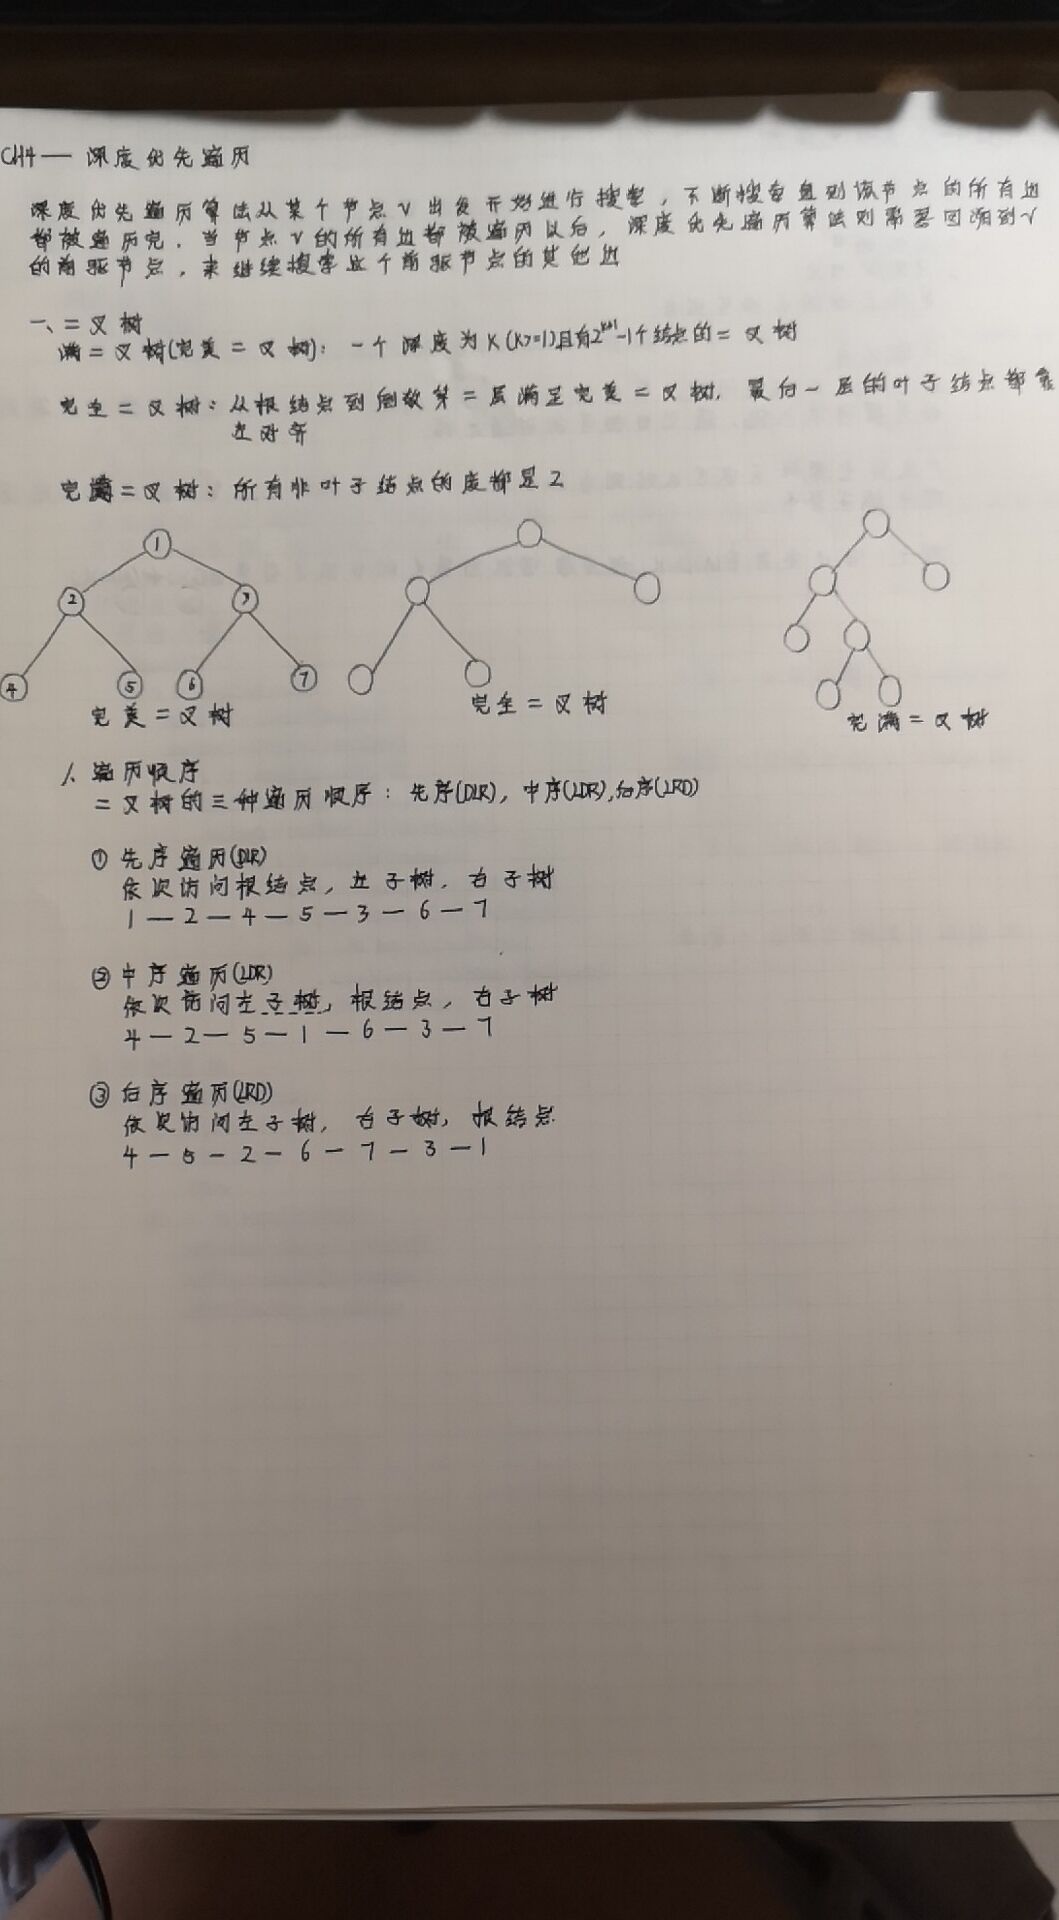 CH4— 深度优先遍历
深度优先遍历算法从某个节点V出发开始进行搜索，不断搜索直到该节点的所有边
都被遍历完．当节点V的所有边都被遍历以后，深度优先遍历算法则需要回溯到V
的前驱节点，来继续搜索这个前驱节点的其他边
一、二叉树
满二叉树(完美二叉树)：一个深度为K(K>=1)且有2^{K+1}-1个结点的二叉树
完全二叉树：从根结点到倒数第二层满足完美二叉树，最后一层的叶子结点都靠
左对齐
完满二叉树：所有非叶子结点的度都是2
1
2 3
4 5 6 7
完美二叉树 完全二叉树 完满二叉树
1. 遍历顺序
二叉树的三种遍历顺序：先序(DLR)，中序(LDR),后序(LRD)
① 先序遍历(DLR)
依次访问根结点，左子树，右子树
1—2—4—5—3—6—7
② 中序遍历(LDR)
依次访问左子树，根结点，右子树
4—2—5—1—6—3—7
③ 后序遍历(LRD)
依次访问左子树，右子树，根结点
4—5—2—6—7—3—1